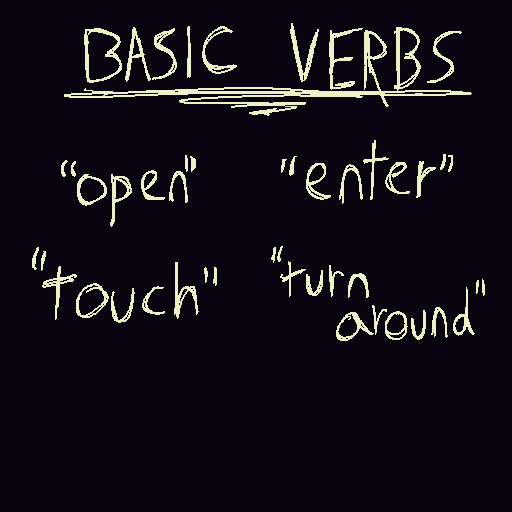 BASIC VERBS
"open" "enter"
"touch" "turn
around"